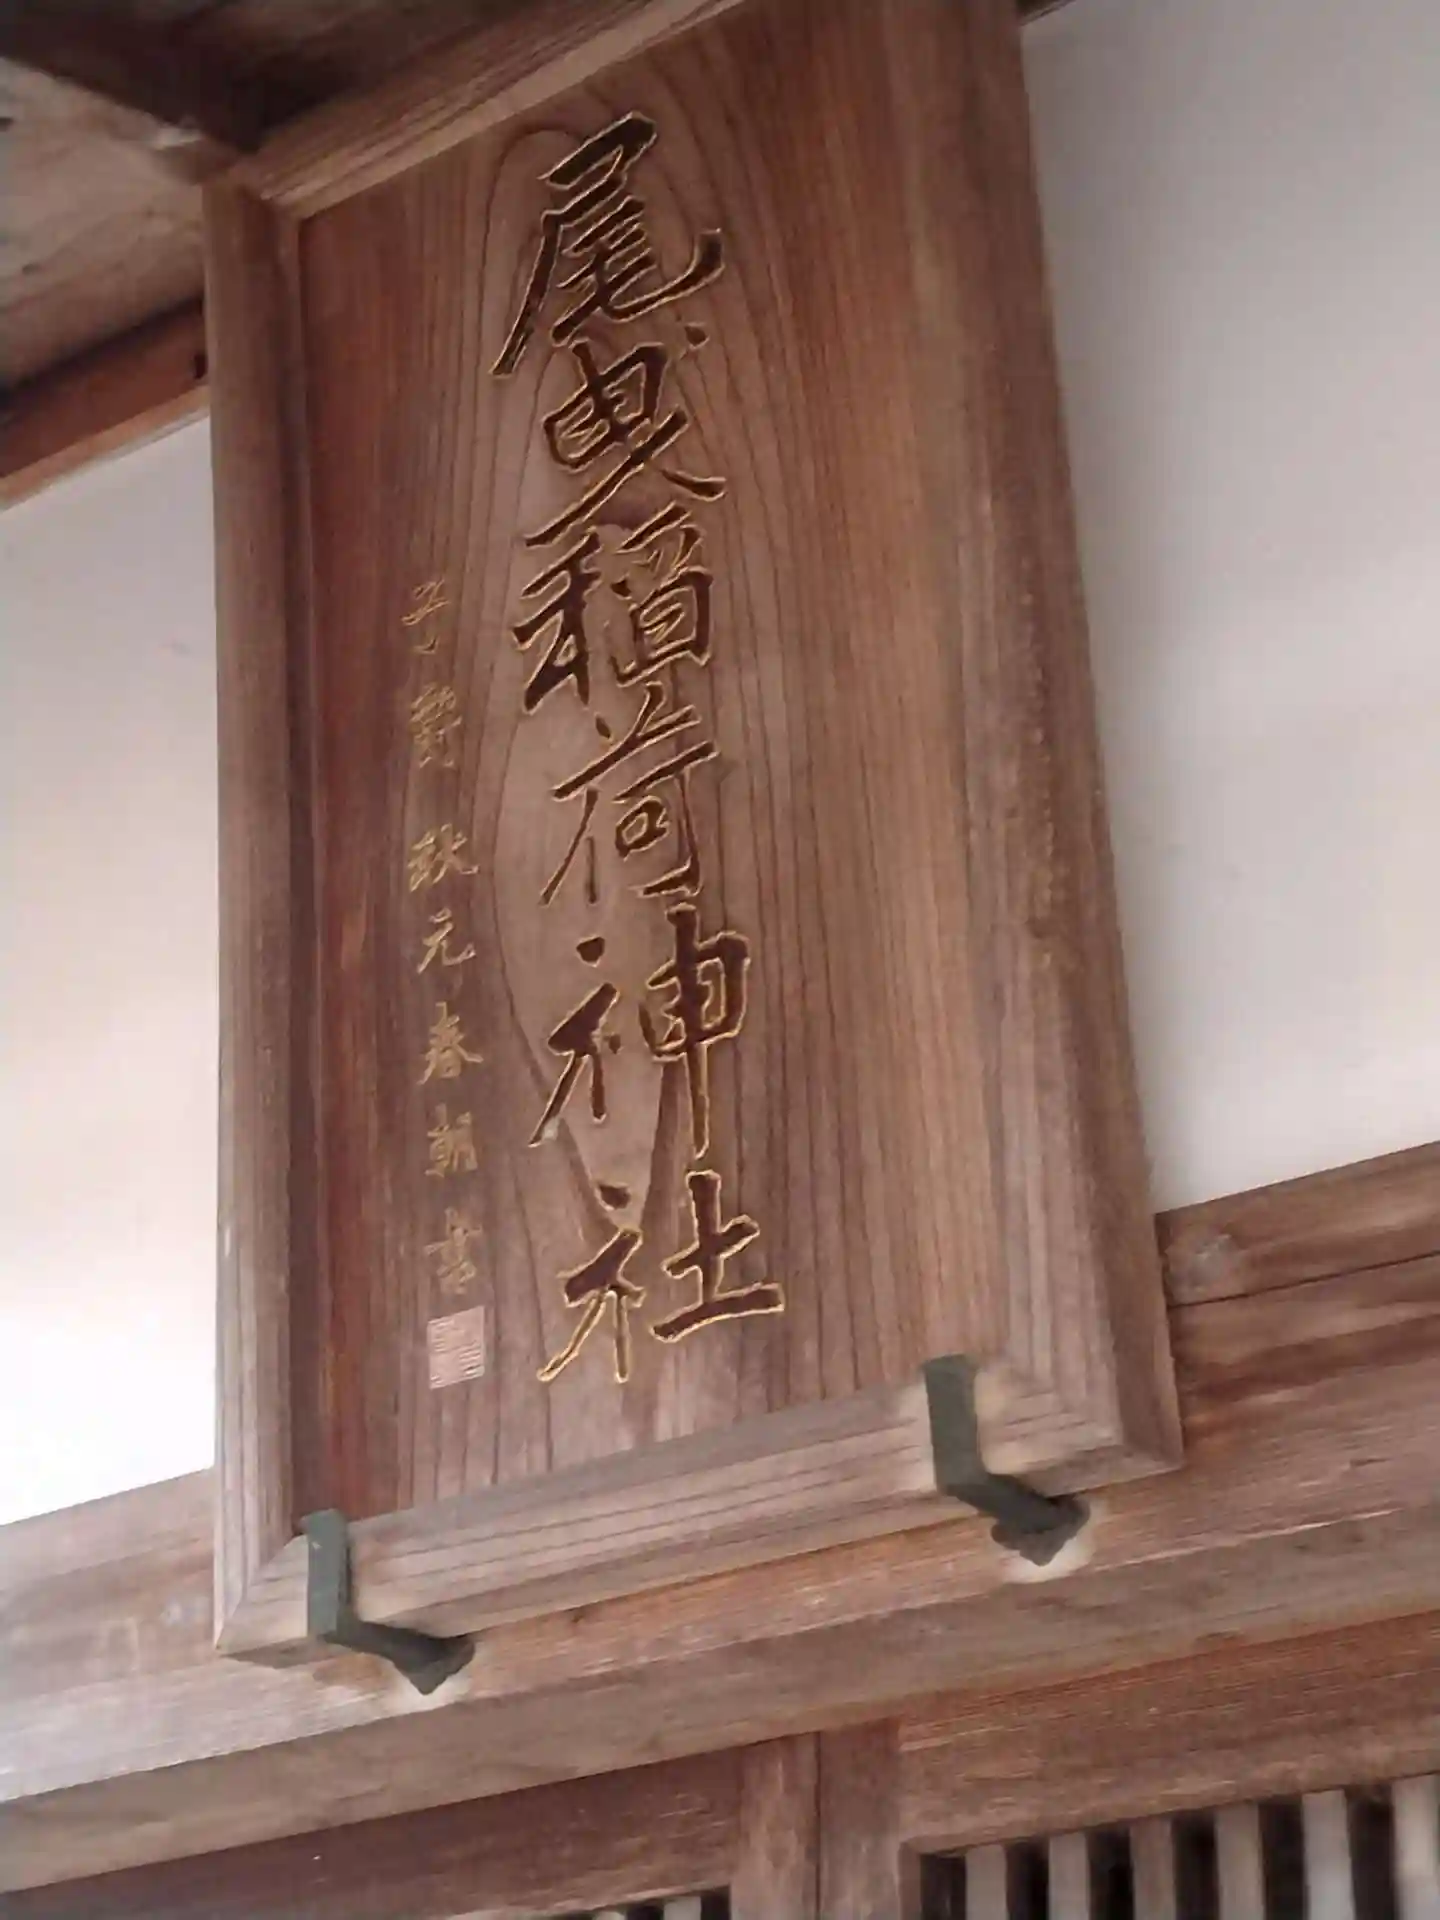 尾曳稲荷神社
子爵 秋元春朝書